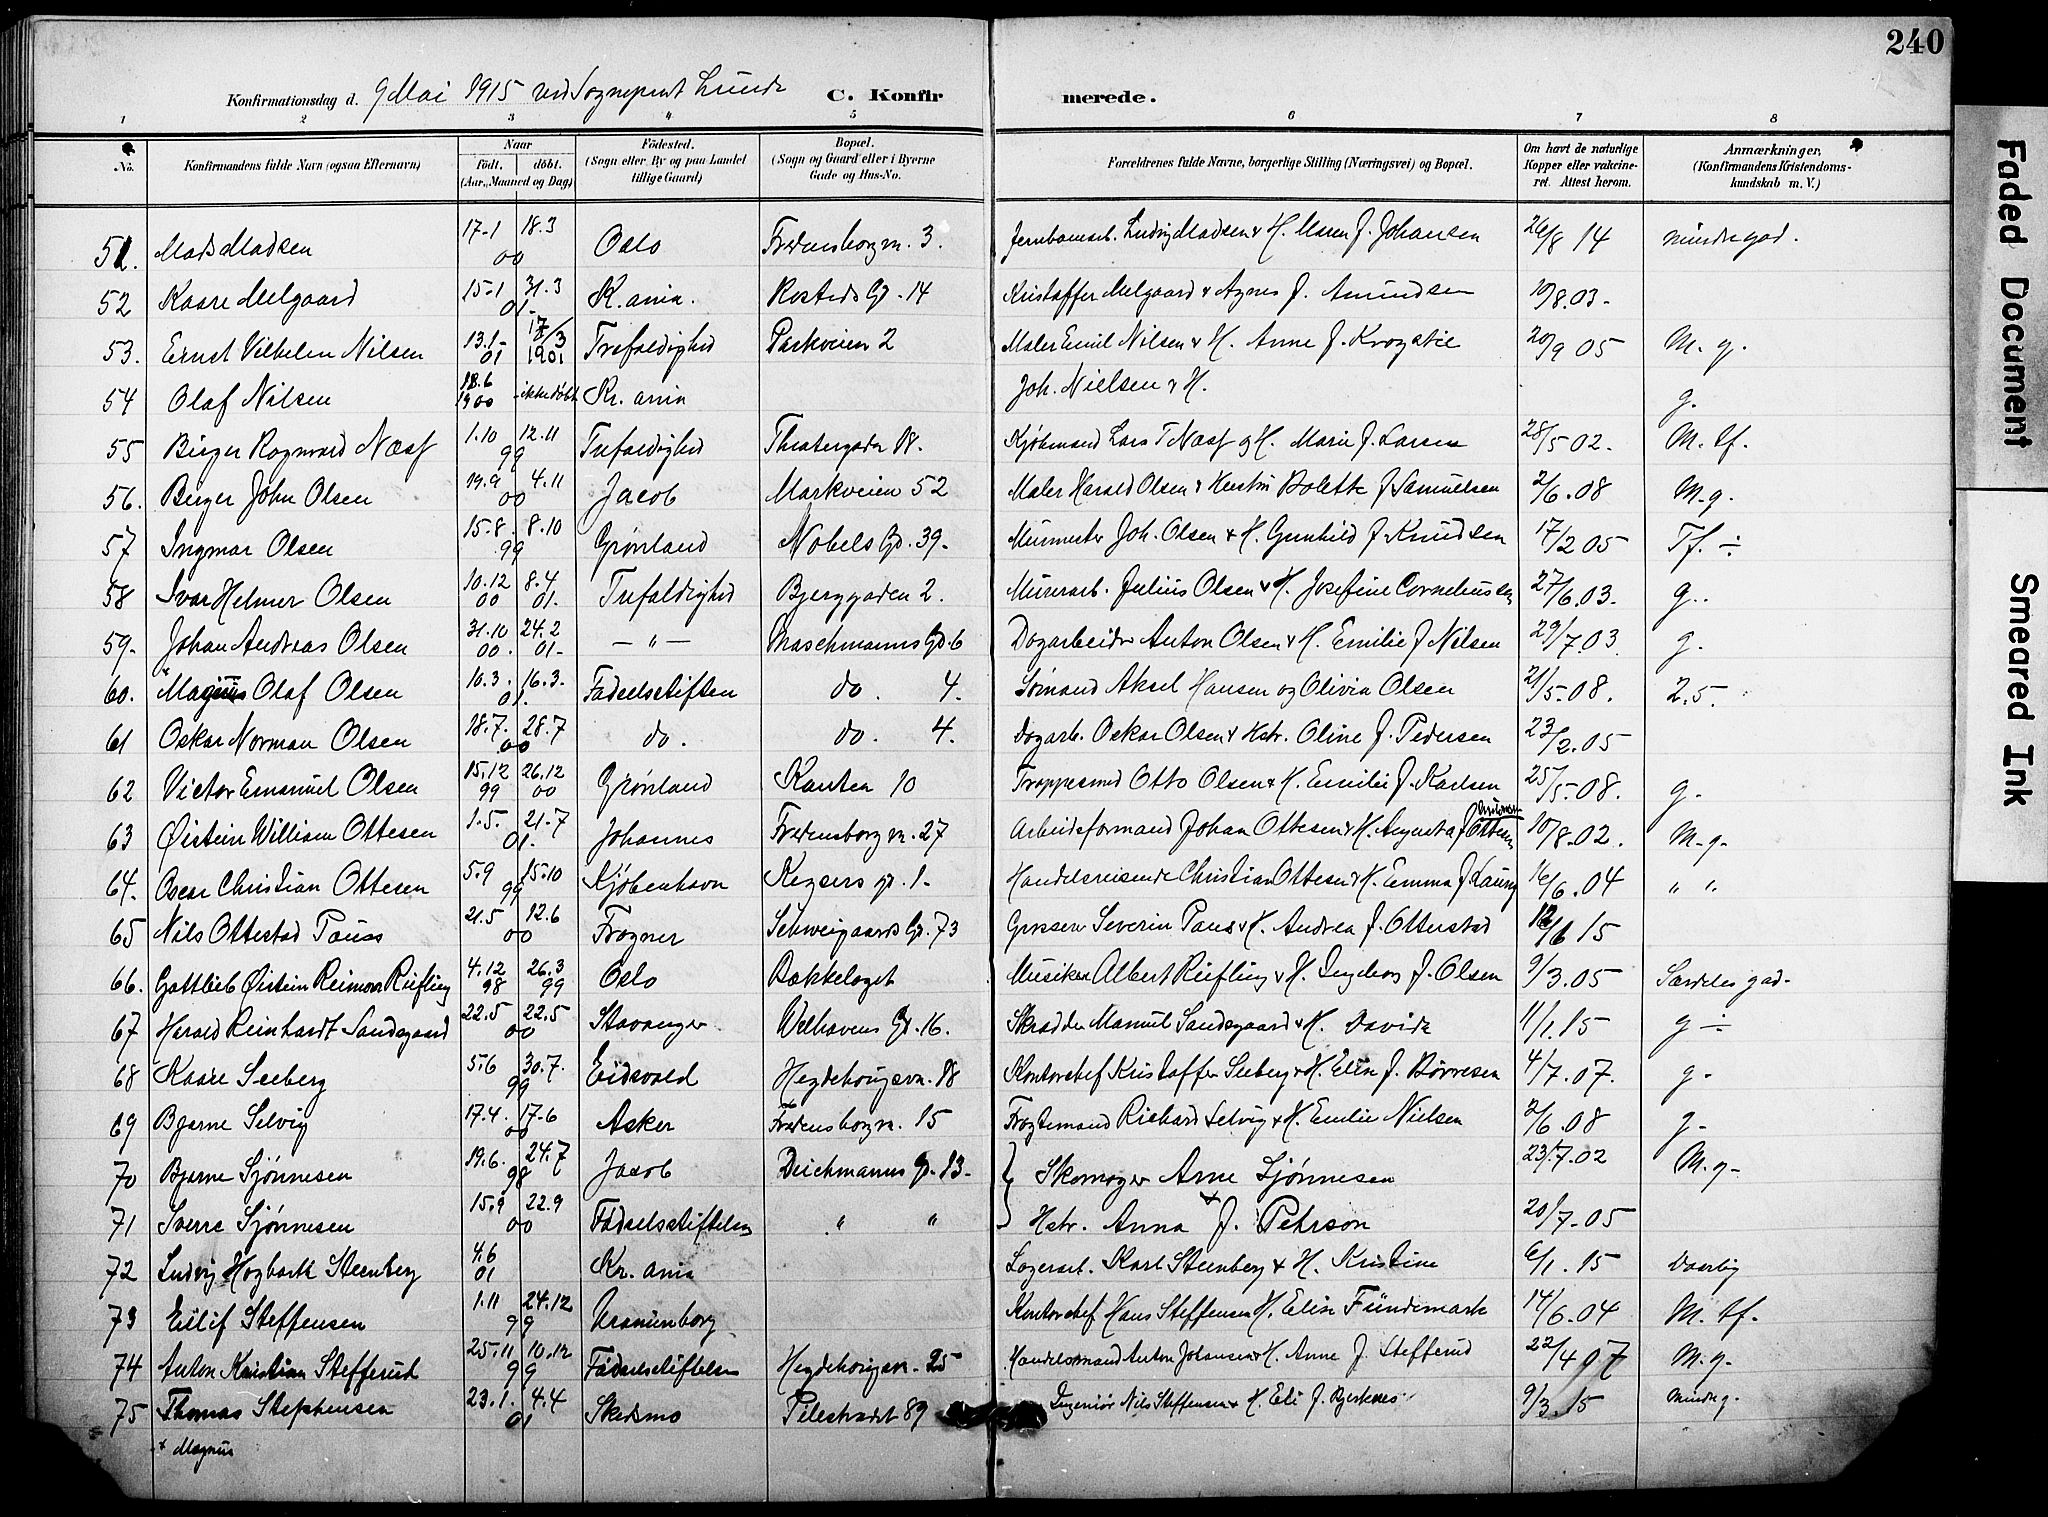 240
Konfirmationsdag d. 9 Mai 1915 ved Sogneprest Lunde C. Konfirmerede.
1 2 3 4 5 6 7 8
No. Konfirmandens fulde Navn (ogsaa Efternavn) Naar født. døbt. (Aar, Maaned og Dag) Födested. (Sogn eller By og paa Landet tillige Gaard) Bopæl. (Sogn og Gaard eller i Byerne Gade og Hus-No. Forældrenes fulde Navne, borgerlige Stilling (Næringsvei) og Bopæl. Om havt de naturlige Kopper eller vakcineret. Attest herom. Anmærkninger, (Konfirmandens Kristendomskundskab m. V.)
51. Mads Madsen 17-1 18.3 00 Oslo Fredensborgvn. 3. Jernbanearb. Ludvig Madsen & H. Maren f. Johansen 26/8 14 mindre god.
52 Kaare Melgaard 15-1 31.3 01. K.ania. Rosteds Gd. 14 Kristoffer Melgaard & Agnes f. Amundsen 10/8.03-
53. Ernst Vilhelm Nilsen 13.1- 01 17/3 1901 Trefoldighed Parkveien 2 Maler Emil Nilsen & H. Anne f. Krogstie 20/9 05 M. g.
54 Olaf Nilsen 18.6 1900 ikke døbt Kr. ania Joh. Nielsen & H. g.
55 Birger Ragnvald Næss 1.10 12.11 99 Trefoldighed Theatergaden 18. Kjøbmand Lars T Næss og H. Marie f. Larsen 28/5 02. M. tf.
56. Birger John Olsen 19.9 4.11 00 Jacob Markveien 52 Maler Harald Olsen & Hustru Bolette f Samuelsen 2/6.08 M.g.
57 Ingmar Olsen 15.8. 8.10 99 Grønland Nobels Gd. 39- Murmester Joh. Olsen & H. Gunhild f. Knudsen 17/2 05 Tf. ÷
58 Ivar Helmer Olsen 10.12 00 8.4 01. Trefoldighed Bjerggaden 2. Murerarb. Julius Olsen & H. Josefine Corneliussen 27/6.03. g..
59- Johan Andreas Olsen 31.10 00. 24.2 01- — " — Maschmanns Gd. 6 Dagarbeider Anton Olsen & H. Emilie f Nilsen 29/7.03 g.
60. Magnus Olaf Olsen 10.3. 16.3. 01. Fødselsstiften do. 4. Sømand Aksel Hansen og Olivia Olsen 21/5.08. 2.5.
61 Oskar Norman Olsen 18.7. 28.7 00 do. do. 4. Dagarb. Oskar Olsen & Hstr. Oline f. Pedersen 23/2.05
62 Victor Emanuel Olsen 15.12 99 26.12 00 Grønland Kanten 10 Trappesmed Otto Olsen & H. Emilie f. Karlsen 25/5.08. g.
63 Øistein William Ottesen 1.5. 21.7 01. Johannes Fredensborgvn. 27 Arbeidsformand Johan Ottesen & H. Augusta f Ottesen 10/8.02. M.g.
64. Oscar Christian Ottesen 5.9 15.10 99 Kjøbenhavn Keysers gd. 1- Handelsreisende Christian Ottesen & H. Emma f Laung 16/6.04 " "
65 Nils Ottestad Pauss 21.5 12.6 00 Frogner Schweigaards Gd. 73 Grosserer Severin Paus & H. Andrea f. Otterstad 12/6 15
66. Gottlieb Øistein Reimar Riefling 4.12 98 26.3 99 Oslo Bækkelaget Musiker Albert Riefling & H. Ingeborg f. Olsen 9/3.05 Særdeles god-
67 Harald Reinhardt Sandsgaard 22.5 22.5 00 Stavanger Welhavens Gd. 16. Skrædder Manuel Sandsgaard & H. Davida 11/1.15 g ÷
68 Kaare Seeberg 5.6 30.7. 99 Eidsvold Hegdehaugsvn. 18 Kontorchef Kristoffer Seeberg & H. Elin f. Børresen 4/7.07. g-
69 Bjarne Selvig 17.4. 17.6 00 Asker Fredensborgvn. 15 Fragtemand Richard Selvig & H. Emilie Nielsen 2/6.08 g-
70 Bjarne Sjønnesen 19.6. 24.7 98 Jacob Deichmanns Gd. 13- Skomager Arne Sjønnesen 23/7.02 M.g-
71 Sverre Sjønnesen 15.9 22.9 00 Fødselsstiftelsen " " Hstr. Anna f. Pehrson 20/7-05
72 Ludvig Hagbarth Steenberg 4.6 01 Kr. ania Lagerarb. Karl Steenberg & H. Kristine 6/1.15 Daarlig
73 Eilif Steffensen 1.11 24.12 99 Uranienborg Kontorchef Hans Steffensen H. Elin Fundemark 14/6.04 M. tf.
74 Anton Kristian Stefferud 25.11 10.12 99 Fødselsstiftelsen Hegdehaugsvn. 25 Handelsmand Anton Johansen & H. Anne f. Stefferud 22/4 07 M.g.
75 Thomas Stephensen 23.1. 4.4 01 Skedsmo Pilestrædet 89 Ingeniør Nils Steffensen & H. Eli f. Bjerknes 9/3.15 mindre g.
+ Magnus
Faded Document
Smeared Ink